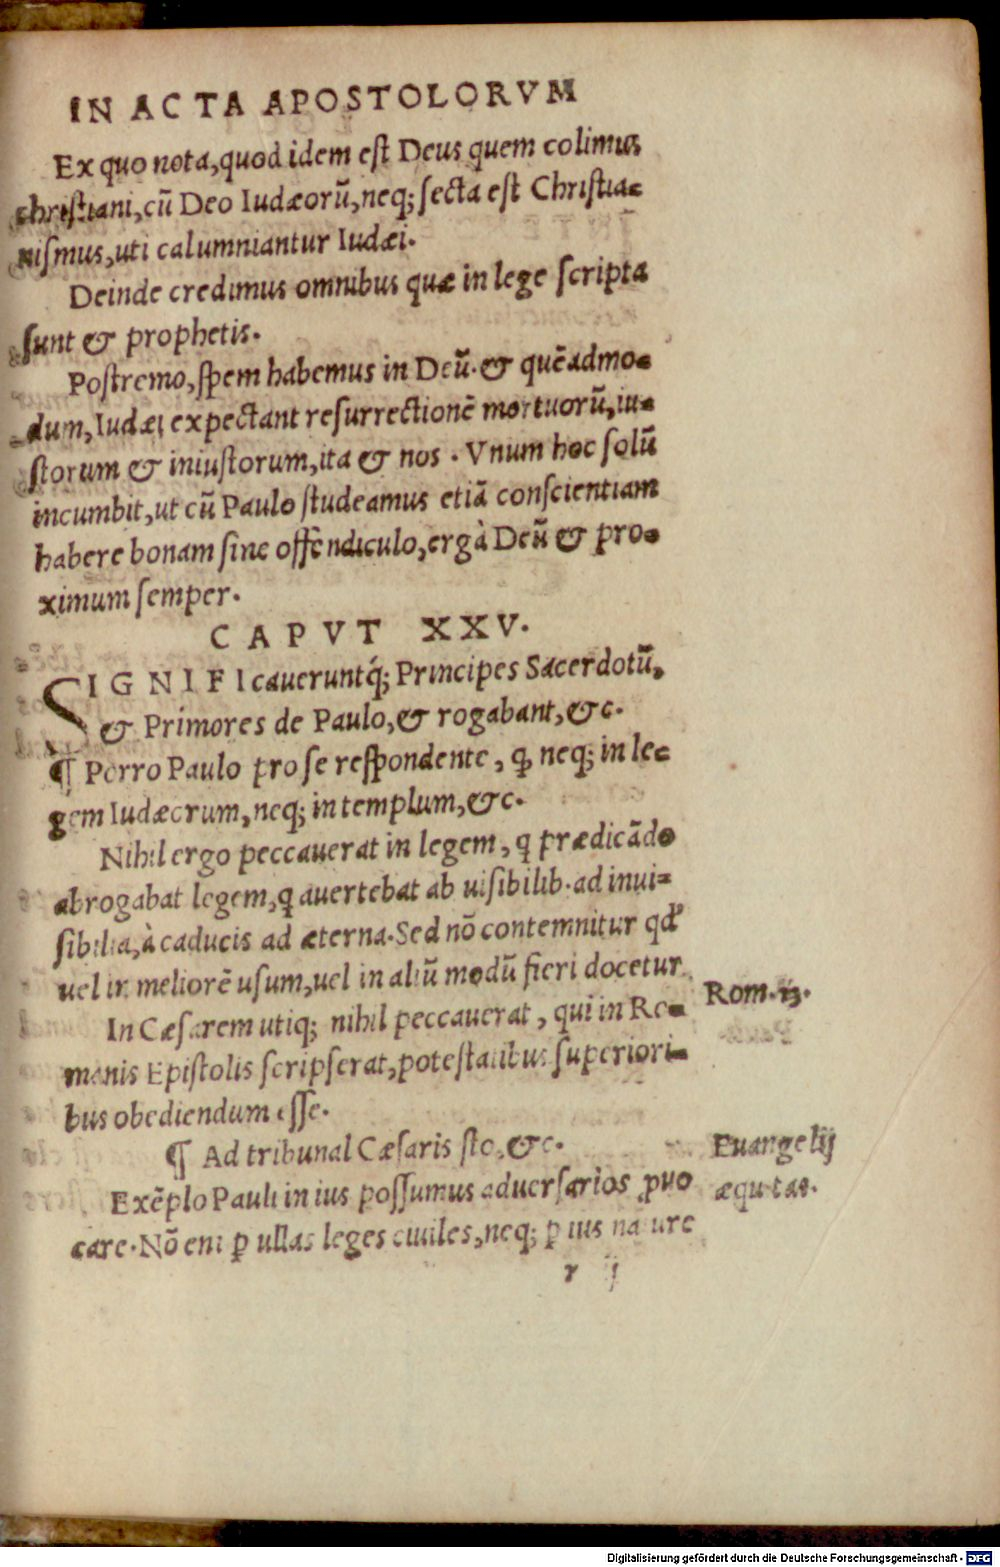 IN ACTA APOSTOLORVM
Ex quo nota, quod idem est Deus quem colimus
christiani, cū Deo Iudæorū, neq; secta est Christia-
nismus, uti calumniantur Iudæi.
Deinde credimus omnibus quæ in lege scripta
sunt & prophetis.
Postremo, spem habemus in Deū. & quēadmo-
dum, Iudæi expectant resurrectionē mortuorū, iu-
storum & iniustorum, ita & nos. Vnum hoc solū
incumbit, ut cū Paulo studeamus etiā conscientiam
habere bonam sine offēndiculo, ergà Deū & pro-
ximum semper.
CAPVT XXV.
SIGNIFIcaueruntq́; Principes Sacerdotū,
& Primores de Paulo, & rogabant, &c.
¶ Porro Paulo pro se respondente, ꝙ neq; in le-
gem Iudæorum, neq; in templum, &c.
Nihil ergo peccauerat in legem, q prædicādo
abrogabat legem, q auertebat ab uisibilib. ad inui-
sibilia, à caducis ad æterna. Sed nō contemnitur qd'
uel in meliorē usum, uel in aliū modū fieri docetur
Rom. 13.
In Cæsarem utiq; nihil peccauerat, qui in Ro-
manis Epistolis scripserat, potestatibus superiori-
bus obediendum esse.
¶ Ad tribunal Cæsaris sto, &c.
Euangelij
æquitas.
Exēplo Pauli in ius possumus aduersarios ꝓuo
care. Nō eni ꝑ ullas leges ciuiles, neq; ꝑ ius nature
r ij
Digitalisierung gefördert durch die Deutsche Forschungsgemeinschaft - DFG